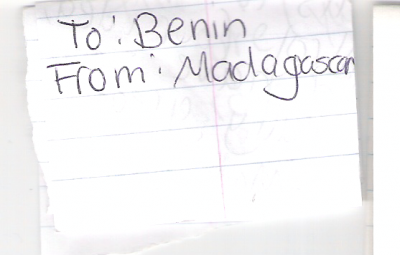 To: Benin
From: Madagascar